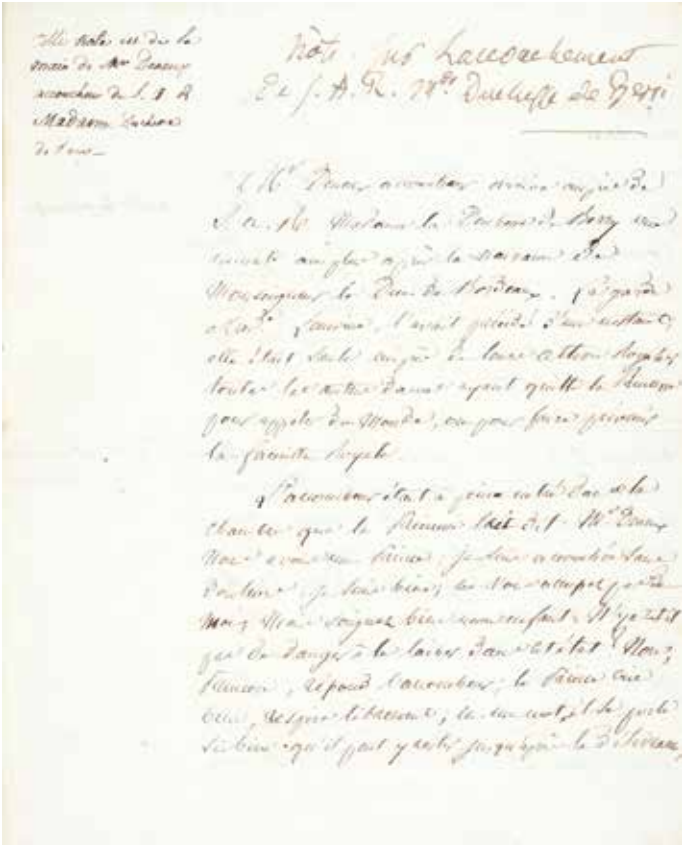 Cette note est de la
main de Mr Deneux
accoucheur de S. A R
Madame Duchesse
de Berry
Note sur L'accouchement
De S. A. R. Me Duchesse de Berri
Mr Deneux accoucheur arriva auprès de
S. A. R. Madame la Duchesse de Berry une
minute au plus après la naissance de
Monseigneur le Duc de Bordeaux. La garde
Lemoine, l'avait précédé d'un instant,
elle était seule auprès de leurs altesses Royales,
toutes les autres dames ayant quitté la Princesse
pour appeler du monde, ou pour faire prévenir
la famille Royale
L'accoucheur était à peine entré dans la
chambre que la Princesse lui dit Mr Deneux
nous avons un Prince, je suis accouchée sans
douleur, je suis bien, ne vous occupez pas de
moi, mais soignez bien mon enfant. N'y a-t-il
pas de danger à le laisser dans cet état? Non,
Princesse, répond l'accoucheur, le Prince crie
bien, respire librement, en un mot, il se porte
si bien qu'il peut y rester jusqu'après la délivrance,